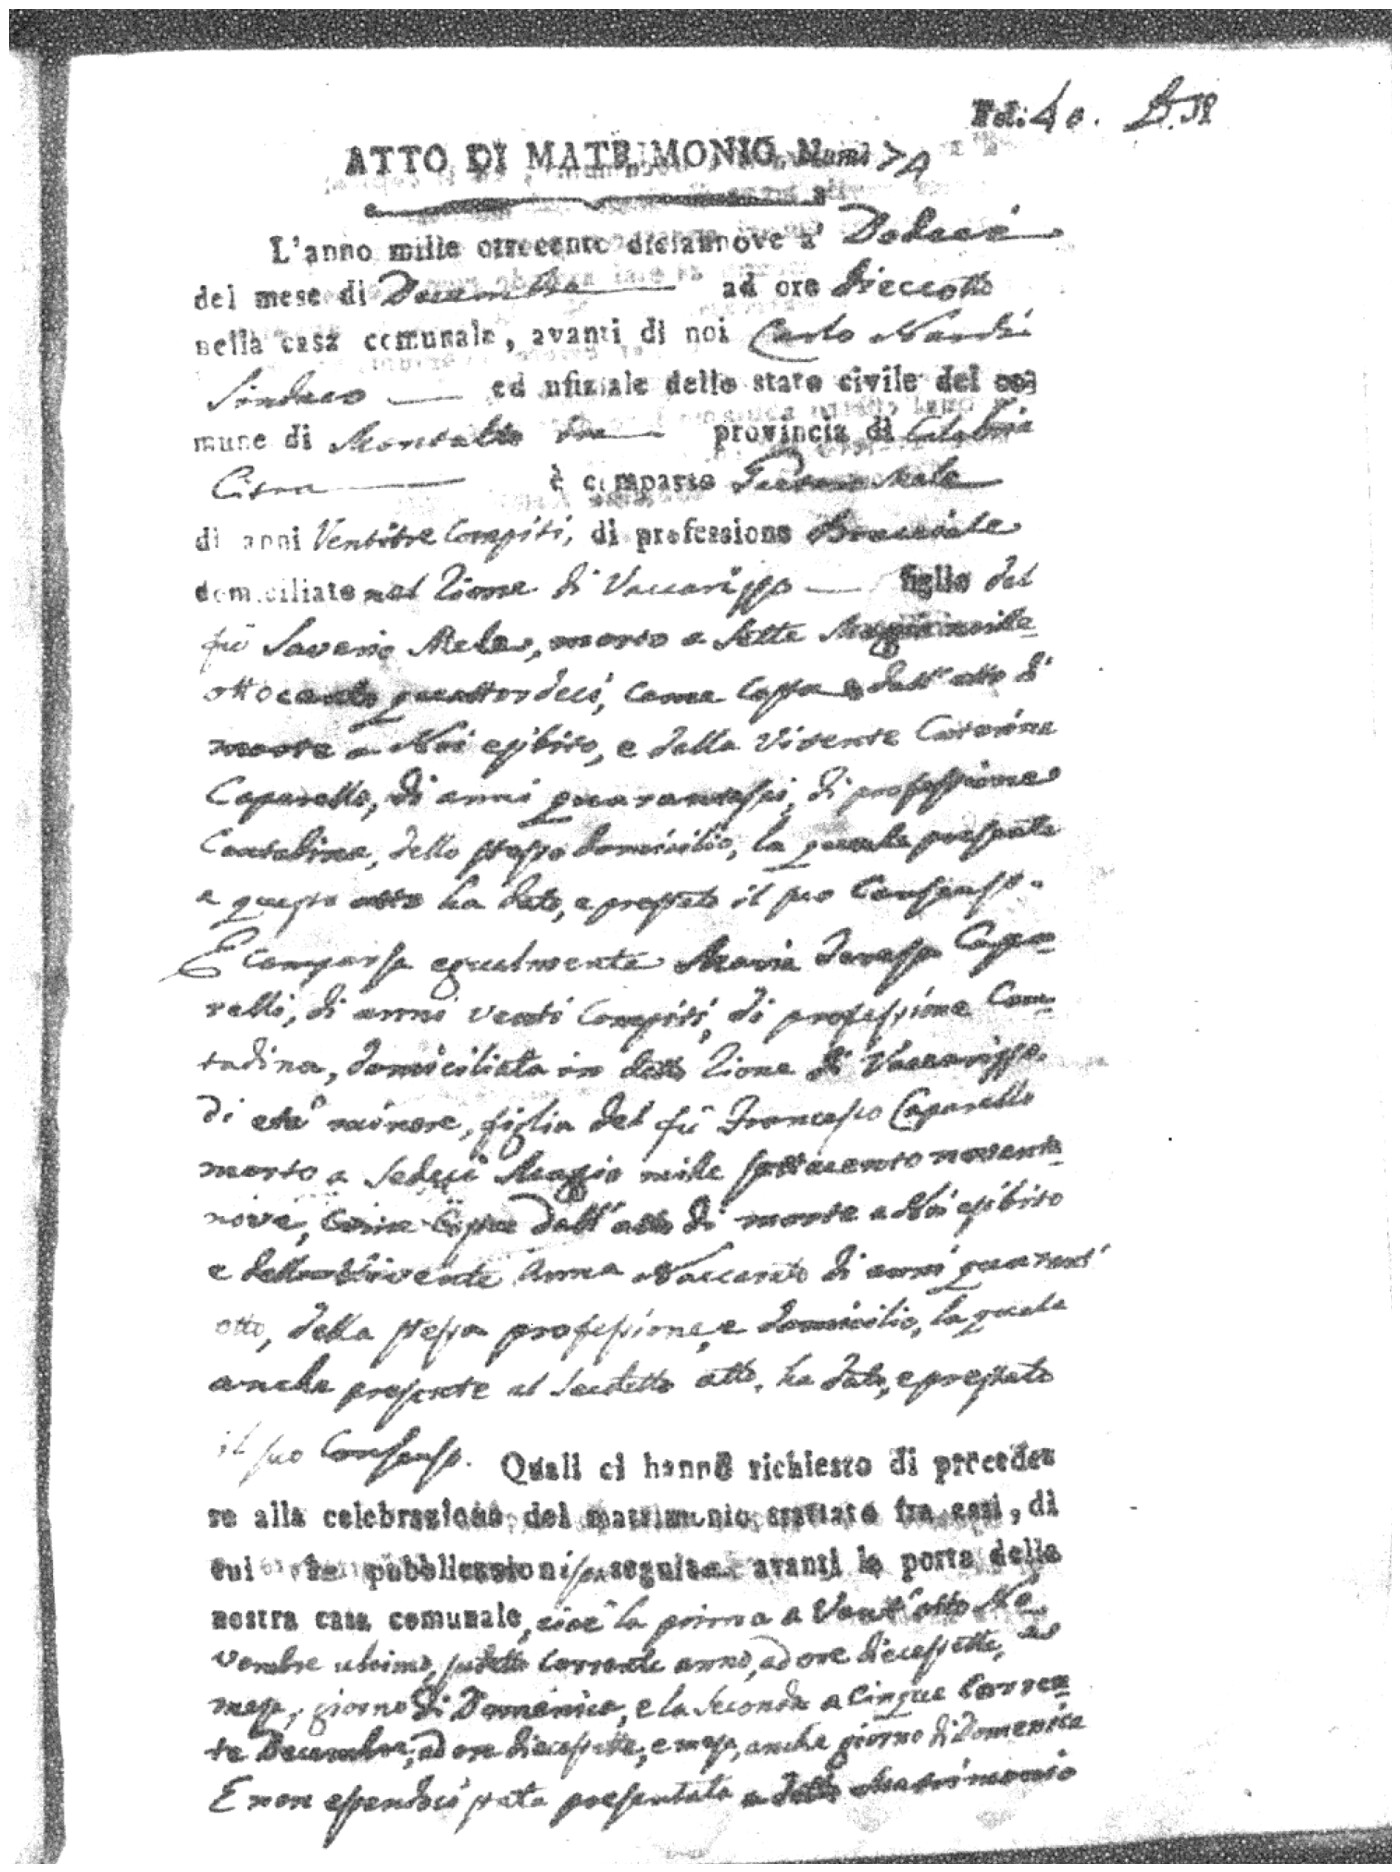 Fol: 40.
ATTO DI MATRIMONIO Num:
L'anno mille ottecento diciannove a' Dodeci
del mese di Decembre ad ore dieccotto
nella casa comunale, avanti di noi Carlo Nardi
Sindaco ed ufiziale dello stato civile del co-
mune di Montalto provincia di Calabria
Citra è comparso Mele
di anni Ventitre Compiti, di professione Bracciale
domiciliato nel Rione di Vaccarizzo figlio del
fù Saverio Mele, morto a Sette Maggio mille
ottocento quattordeci, come Costa dall'atto di
morte a Noi esibito, e dalla Vivente Caterina
Caparello, di anni quarantasei, di professione
Contadina, dello stesso domicilio, la quale presente
a questo atto ha dato, e prestato il suo Consenso.
E Comparsa egualmente Maria Teresa Capa-
relli, di anni venti Compiti, di professione Con-
tadina, domiciliata in detto Rione di Vaccarizzo.
Di età minore, figlia del fù Francesco Caparello
morto a Sedeci Maggio mille settecento novanta-
nove, Come Costa dall'atto di morte a Noi esibito
e della Vivente Anna Naccarato di anni quarant'
otto, della stessa professione, e domicilio, la quale
anche presente al Sudetto atto, ha dato, e prestato
il suo Consenso. Quali ci hanno richiesto di procede-
re alla celebrazione del matrimonio trattato fra essi, di
cui le pubblicazioni son seguite avanti la porta della
nostra casa comunale, cioè la prima a Vent'otto No-
vembre ultimo, sudetto corrente anno, ad ore diecessette, e
mezza, giorno di Domenica, e la Seconda a Cinque Corren-
te Decembre, ad ore diecessette, e mezza, anche giorno di Domenica
E non essendoci stata presentata a detto Matrimonio